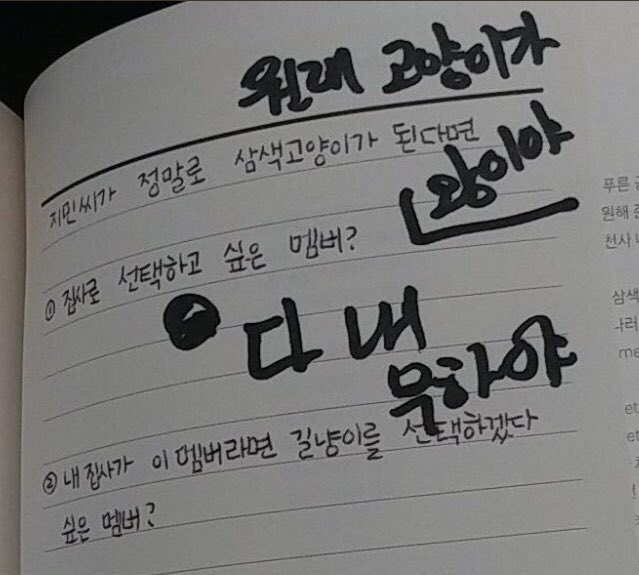 원래 고양이가
지민씨가 정말로 삼색고양이가 된다면
왕이야
① 집사로 선택하고 싶은 멤버?
다 내
부하야
② 내 집사가 이 멤버라면 길냥이를 선택하겠다
싶은 멤버?
푸른
원해
천사
삼색
me
et
et